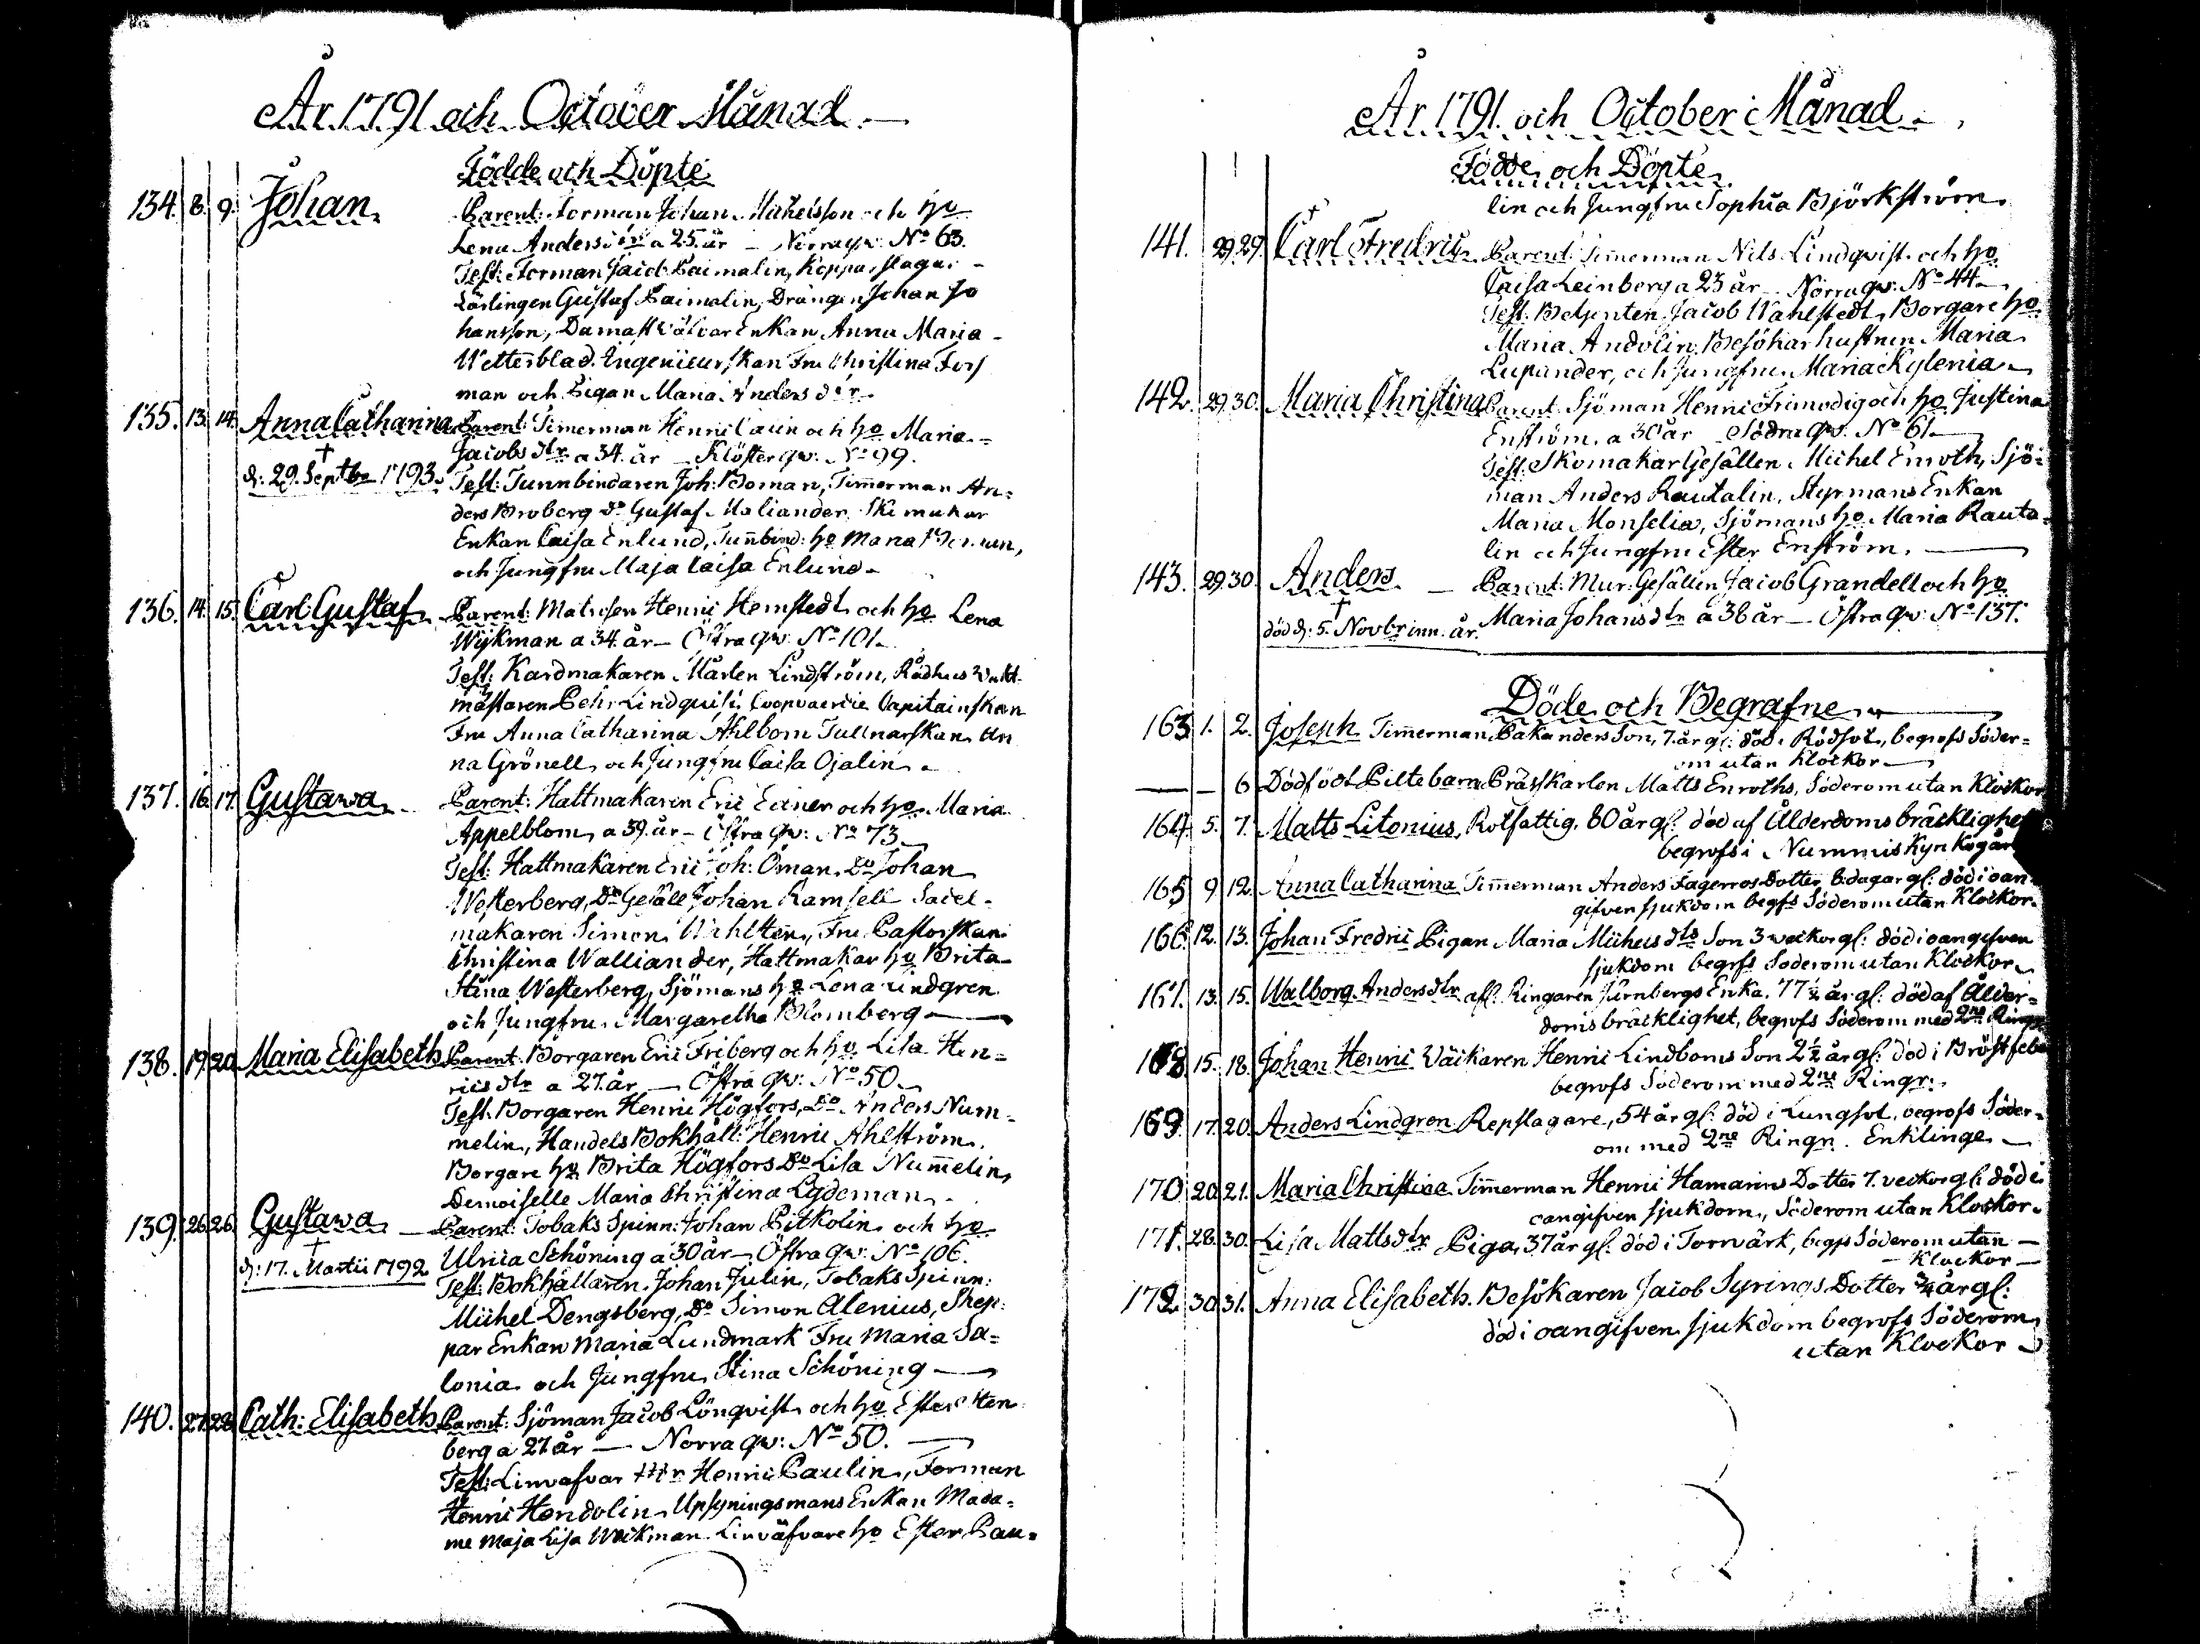 År 1791 och October Månad.
Födde och Döpte
134. 8. 9. Johan. Parent: Forman Johan Micheisson och ho
Lena Andersdr a 25. år - Norra qv: No 63.
Test: Forman Jacob Paimalin, Kopparslaga:
Lärlingen Gustaf Paimalin, Drängen Johan Jo
hansson, Damastväfvar Enkan Anna Maria
Wetterblad. Ingenieurskan Fru Christina Fors
man och Pigan Maria Andersdr.
135. 13. 14. Anna Catharina Parent: Timerman Henric och ho Maria
Jacobs dtr a 34. år - Klöster qv: No 99.
†
d: 29. Septbr 1793. Test: Tunnbindaren Joh: Boman, Timerman An=
ders Broberg do Gustaf Maliander
Enkan Caisa Enlund, Tunbind: ho Maria Boman,
och Jungfru Maja Caisa Enlund.
136. 14. 15. Carl Gustaf Parent: Matrosen Henric Hemstedt och ho Lena
Wijkman a 34. år - Östra qv: No 101.
Test: Kardmakaren Mårten Lindström, Rådhus Wakt
mästaren Pehr Lindquist, Coopvaerdie Capitainskan
Fru Anna Catharina Ahlbom Tullnarskan An
na Grönell och Jungfru Caisa Ojalin.
137. 16. 17. Gustava. Parent: Hattmakaren Eric Ekner och ho Maria
Appelblom, a 39. år - Östra qv: No 73
Test: Hattmakaren Eric Joh: Öman, Do Johan
Westerberg, Do Gesäll Johan Ramsell Sadel=
makaren Simon Wahlsten, Fru Pastorskan
Christina Walliander, Hattmakar ho Brita
Stina Westerberg, Sjömans ho Lena Lindgren
och Jungfru Margaretha Blomberg
138. 19. 20. Maria Elisabeth Parent: Borgaren Eric Friberg och ho Lisa Hen=
rics dtr a 27. år - Östra qv: No 50.
Test: Borgaren Henric Högfors, Do Anders Num=
melin, Handels Bokhåll: Henric Ahlström.
Borgare ho Brita Högfors Do Lisa Numelin,
Demoiselle Maria Christina Lydeman.
139. 26. 26. Gustava Parent: Tobaks Spinn: Johan Pitkolin och ho
†
d: 17. Martii 1792 Ulrica Schöning a 30 år - Östra qv: No 106.
Test: Bokhållaren Johan Julin, Tobaks Spinn:
Michel Dengsberg, do Simon Alenius, Skep=
par Enkan Maria Lundmark Fru Maria Sa=
lonia och Jungfru Stina Schöning
140. 27. 28. Cath: Elisabeth Parent: Sjöman Jacob Lönqvist och ho Ester Sten
berg a 27 år - Norra qv: No 50.
Test: Linvafvar Henric Paulin, Forman
Henric Hendolin, Upsyningsmans Enkan Mada=
me Maja Lisa Weckman. Linväfvare ho Ester Pau=
År 1791. och October Månad
Födde och Döpte
lin och Jungfru Sophia Björkström.
†
141. 29. 29. Carl Fredric Parent: Timerman Nils Lindqvist och ho
Caisa Leinberg a 23 år - Norra qv: No 44
Test: Betjenten Jacob Wahlstedt, Borgare ho
Maria Andolin. Besökar hustrun Maria
Lupander, och Jungfru Maria Kylenia
142. 29. 30. Maria Christina Parent: Sjöman Henric Frimodig och ho Justina
Enström, a 30 år Södra qv. No 61.
Test: Skomakar Gesällen Michel Enroth, Sjö=
man Anders Rautalin, Styrmans Enkan
Maria Monselia, Sjömans ho Maria Rauta=
lin och Jungfru Ester Enström.
143. 29. 30. Anders Parent: Mur: Gesällen Jacob Grandell och ho
†
död d: 5. Novbr inn. år. Maria Johans dtr a 38 år - Östra qv: No 137.
Döde och Begrafne
163 1. 2. Joseph Timerman Backanders Son, 7. år gl: död i Rödsot, begrofs Söder=
om utan Klockor
— — 6 Dödfödt Piltebarn Prässkarlen Matts Enroths, Söderom utan Klockor
164. 5. 7. Matts Litonius, Rotfattig, 80 år gl: död af Ålderdoms bräcklighet
begrofs i Nummis Kyrkogård
165 9 12. Anna Catharina Timerman Anders Fagerros Dotter 6. dagar gl: död i oan
gifven sjukdom begrfs Söderom utan Klockor.
166. 12. 13. Johan Fredric Pigan Maria Michels dtr Son 3 veckor gl: död i oangifven
sjukdom begrfs Söderom utan Klockor
167. 13. 15. Walborg Andersdtr afl: Ringaren Enka. 77 1/2 år gl: död af Ålder=
doms bräcklighet, begrofs Söderom med 2ne Ringr
168 15. 18. Johan Henric Väckaren Henric Lindboms Son 2 1/2 år gl: död i Bröstfeber
begrofs Söderom med 2ne Ringr:
169 17. 20. Anders Lindgren Repslagare, 54 år gl: död i Lungsot, begrofs Söder=
om med 2ne Ringr. Enklinge
170 20. 21. Maria Christina Timerman Henric Hamarins Dotter 7. veckor gl: död i
oangifven sjukdom, Söderom utan Klockor.
171. 28. 30. Lisa Matts dtr Piga, 37 år gl: död i Torrvärk, begrfs Söderom utan
Klockor
172 30. 31. Anna Elisabeth. Besökaren Jacob Syrings Dotter 3/4 år gl:
död i oangifven sjukdom begrofs Söderom
utan Klockor